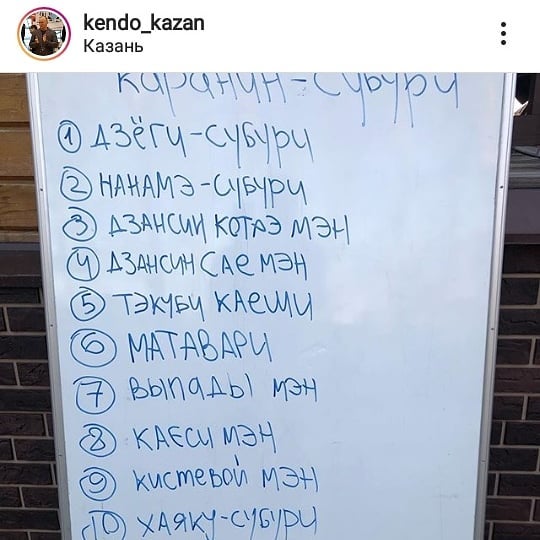 kendo_kazan
Казань
каранин-субури
1 дзёги-субури
2 нанамэ-субури
3 дзансин котаэ мэн
4 дзансин сае мэн
5 тэкуби каеши
6 матавари
7 выпады мэн
8 каеси мэн
9 кистевой мэн
10 хаяку-субури